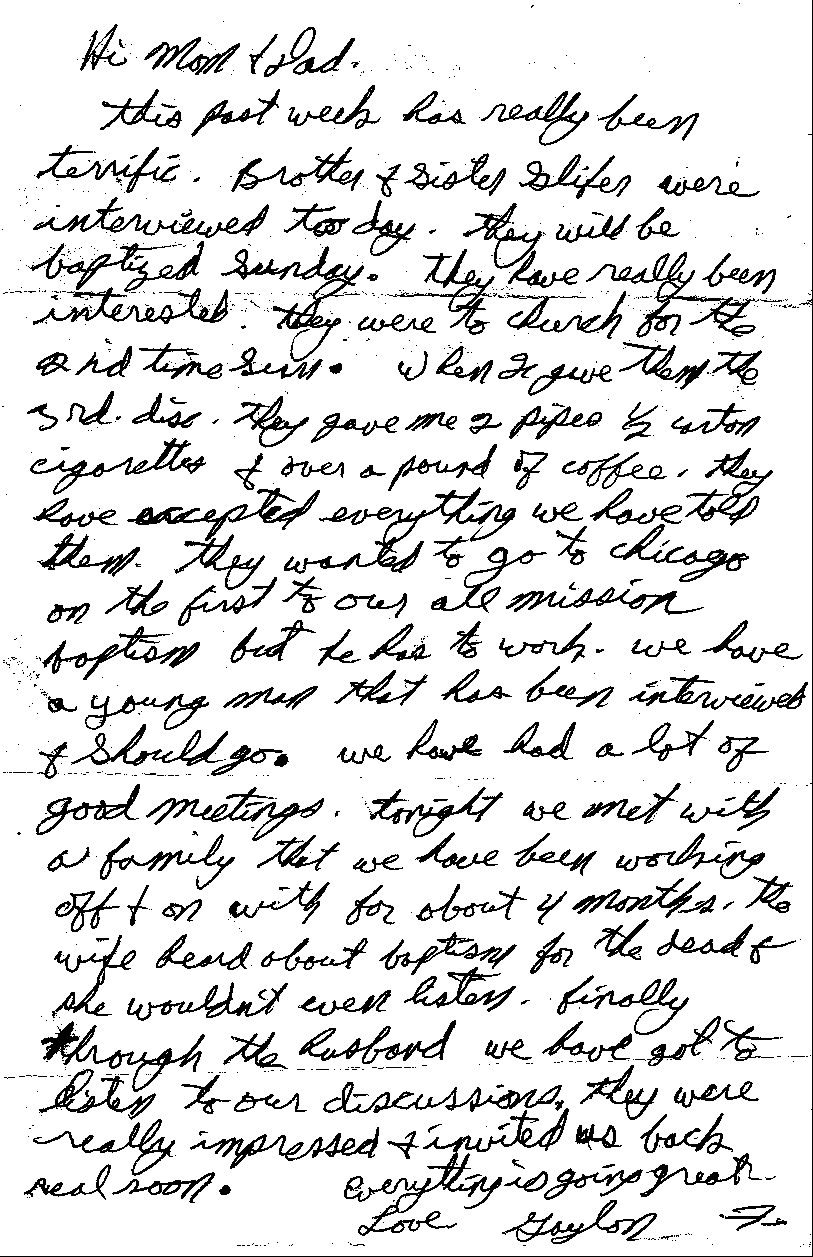 Hi Mom & Dad.
This past week has really been
terrific. Brother & Sister Slifer were
interviewed today. They will be
baptized Sunday. They have really been
interested. They were to church for the
2nd time Sun. When I give them the
3rd. disc. they gave me 2 pipes 1/2 carton
cigarettes & over a pound of coffee. They
have accepted everything we have told
them. They wanted to go to Chicago
on the first to our all mission
baptism but he has to work. We have
a young man that has been interviewed
& should go. We have had a lot of
good meetings. Tonight we met with
a family that we have been working
off & on with for about 4 months. The
wife heard about baptism for the dead &
she wouldn't even listen. Finally
through the husband we have got to
listen to our discussions. They were
really impressed & invited us back
real soon. Everything is going great.
Love Gaylon